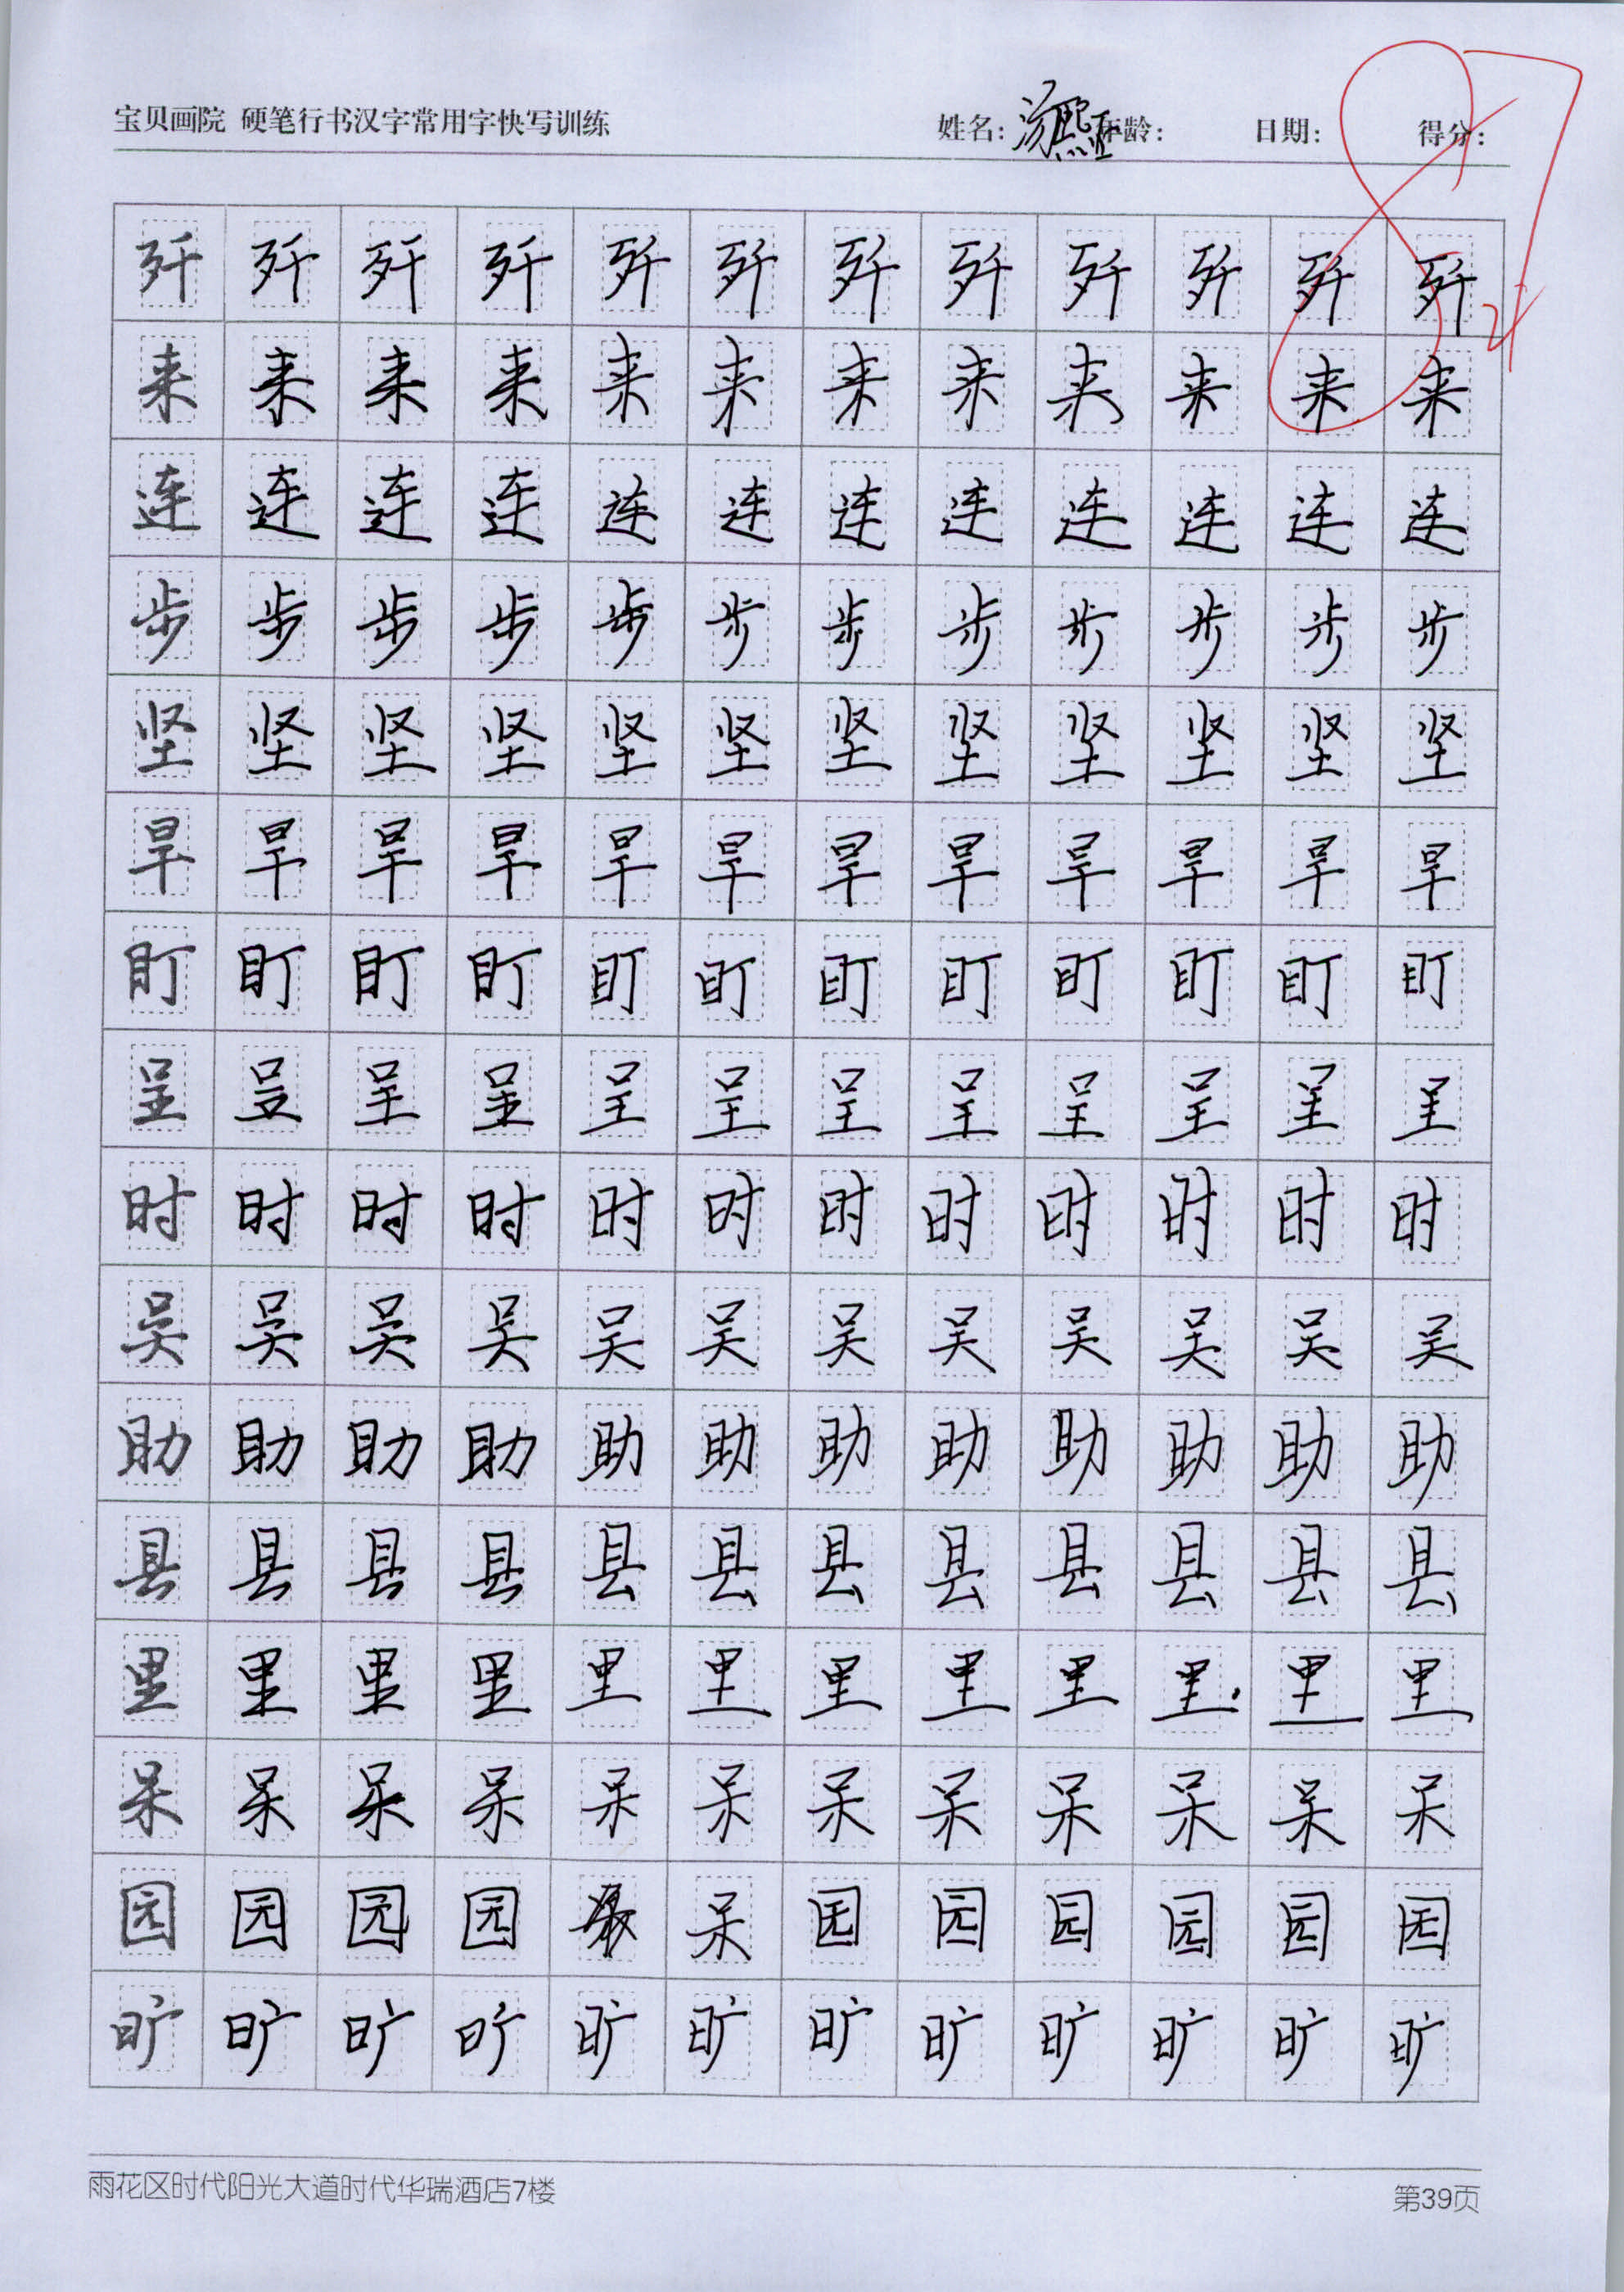 宝贝画院 硬笔行书汉字常用字快写训练 姓名: 汤熙 年龄: 日期: 得分: 87
歼 歼 歼 歼 歼 歼 歼 歼 歼 歼 歼 歼
来 来 来 来 来 来 来 来 来 来 来 来
连 连 连 连 连 连 连 连 连 连 连 连
步 步 步 步 步 步 步 步 步 步 步 步
坚 坚 坚 坚 坚 坚 坚 坚 坚 坚 坚 坚
旱 旱 旱 旱 旱 旱 旱 旱 旱 旱 旱 旱
盯 盯 盯 盯 盯 盯 盯 盯 盯 盯 盯 盯
呈 呈 呈 呈 呈 呈 呈 呈 呈 呈 呈 呈
时 时 时 时 时 时 时 时 时 时 时 时
吴 吴 吴 吴 吴 吴 吴 吴 吴 吴 吴 吴
助 助 助 助 助 助 助 助 助 助 助 助
县 县 县 县 县 县 县 县 县 县 县 县
里 里 里 里 里 里 里 里 里 里 里 里
呆 呆 呆 呆 呆 呆 呆 呆 呆 呆 呆 呆
园 园 园 园 呆 园 园 园 园 园 园
旷 旷 旷 旷 旷 旷 旷 旷 旷 旷 旷 旷
雨花区时代阳光大道时代华瑞酒店7楼 第39页